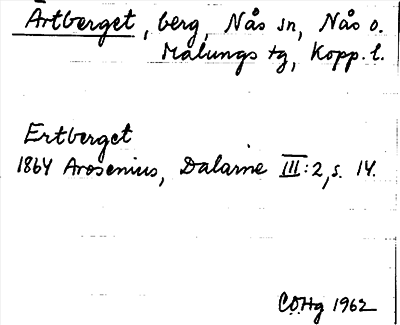 Ärtberget, berg, Nås sn, Nås o.
Malungs tg, Kopp. l.
Ertberget
1864 Arosenius, Dalarne III:2, s. 14.
COHg 1962